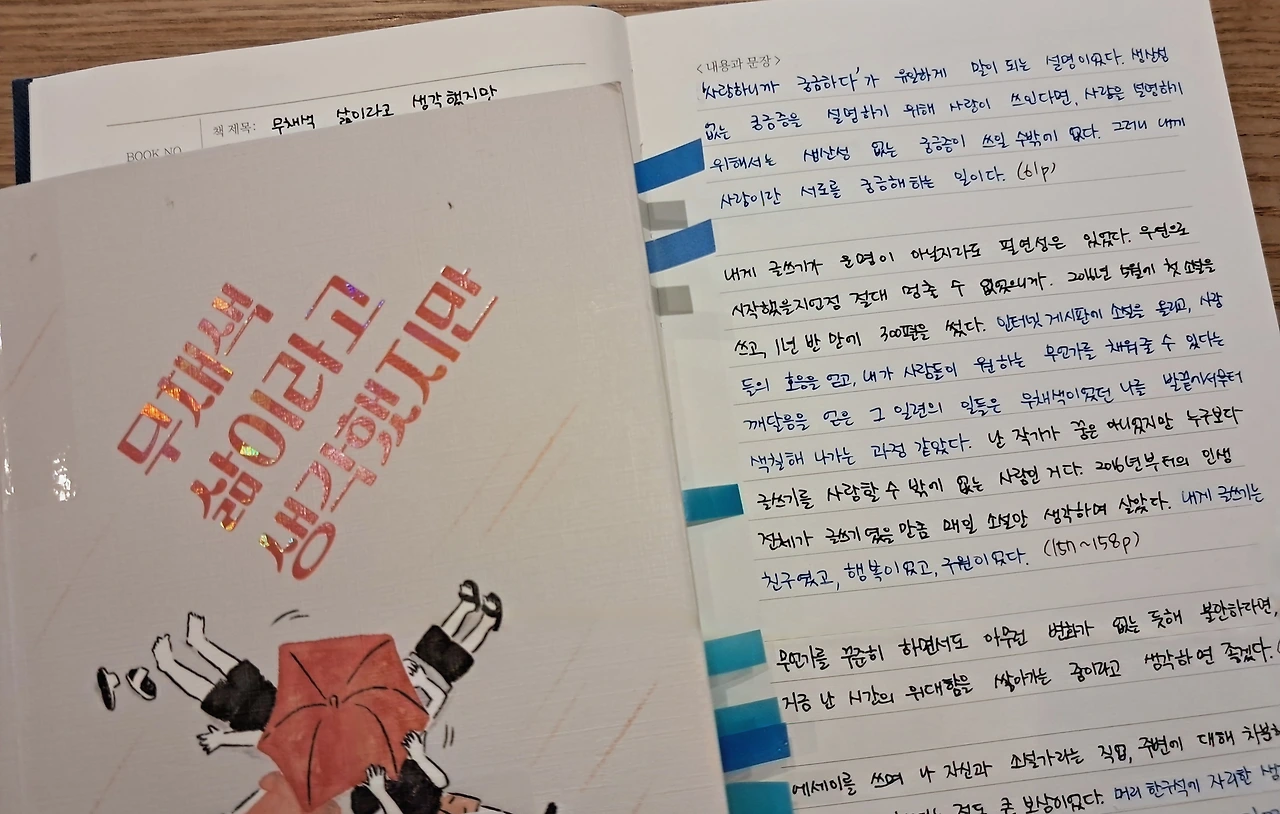 책 제목: 무채색 삶이라고 생각했지만
BOOK NO
무채색
삶이라고
생각했지만
<내용과 문장>
'사랑하니까 궁금하다'가 유일하게 말이 되는 설명이었다. 생산성
없는 궁금증을 설명하기 위해 사랑이 쓰인다면, 사랑을 설명하기
위해서는 생산성 없는 궁금증이 쓰일 수밖에 없다. 그러니 내게
사랑이란 서로를 궁금해하는 일이다. (61p)
내게 글쓰기가 운명이 아닐지라도 필연성은 있었다. 우연으로
시작했을지언정 절대 멈출 수 없었으니까. 2016년 5월에 첫 소설을
쓰고, 1년 반 만에 300편을 썼다. 인터넷 게시판에 소설을 올리고, 사람
들의 호응을 얻고, 내가 사람들이 원하는 무언가를 채워줄 수 있다는
깨달음을 얻은 그 일련의 일들은 무채색이었던 나를 발끝에서부터
색칠해 나가는 과정 같았다. 난 작가가 꿈은 아니었지만 누구보다
글쓰기를 사랑할 수 밖에 없는 사람인 거다. 2016년부터의 인생
전체가 글쓰기였을 만큼 매일 소설만 생각하며 살았다. 내게 글쓰기는
친구였고, 행복이었고, 구원이었다. (157~158p)
무언가를 꾸준히 하면서도 아무런 변화가 없는 듯해 불안하다면,
지금 난 시간의 위대함을 쌓아가는 중이라고 생각하면 좋겠다.
에세이를 쓰며 나 자신과 소설가라는 직업, 주변에 대해 차분히
정도 큰 보상이었다. 머리 한구석에 자리한